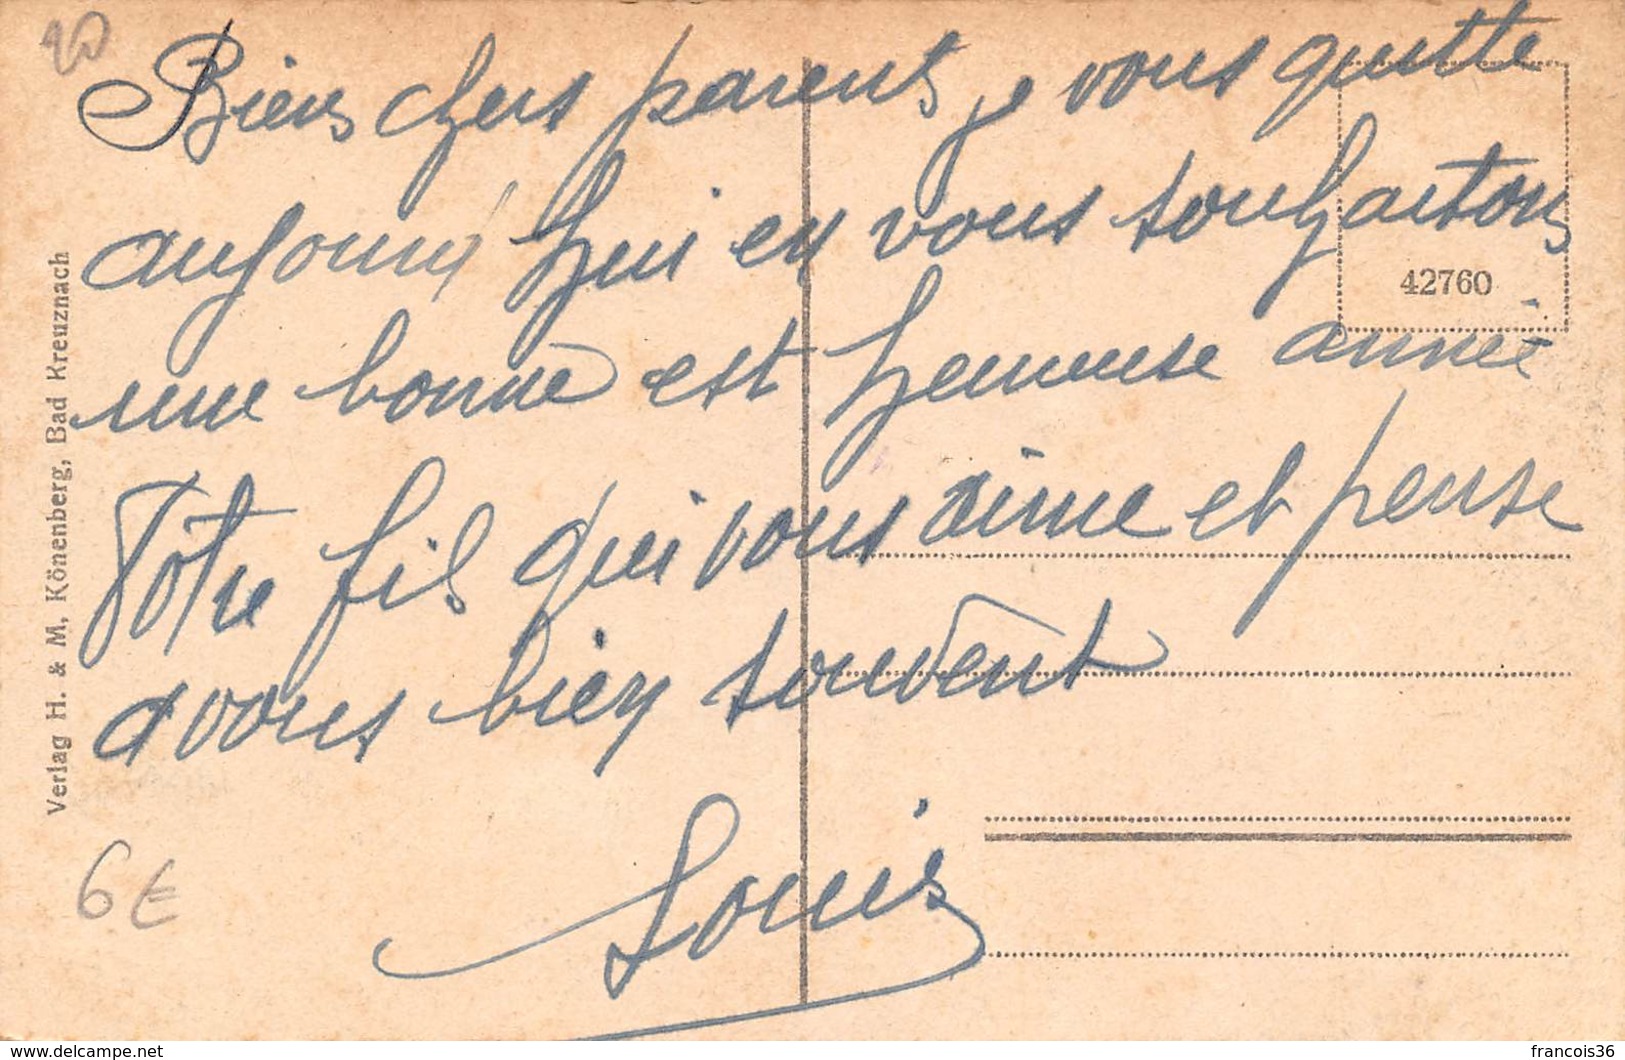 20
Biens chers parents je vous quitte
aujourd hui en vous souhaitons
une bonne est heureuse année
Votre fil qui vous aime et pense
a vous bien souvent
Louis
6 €
Verlag H. & M. Könenberg, Bad Kreuznach
42760
delcampe.net
francois36